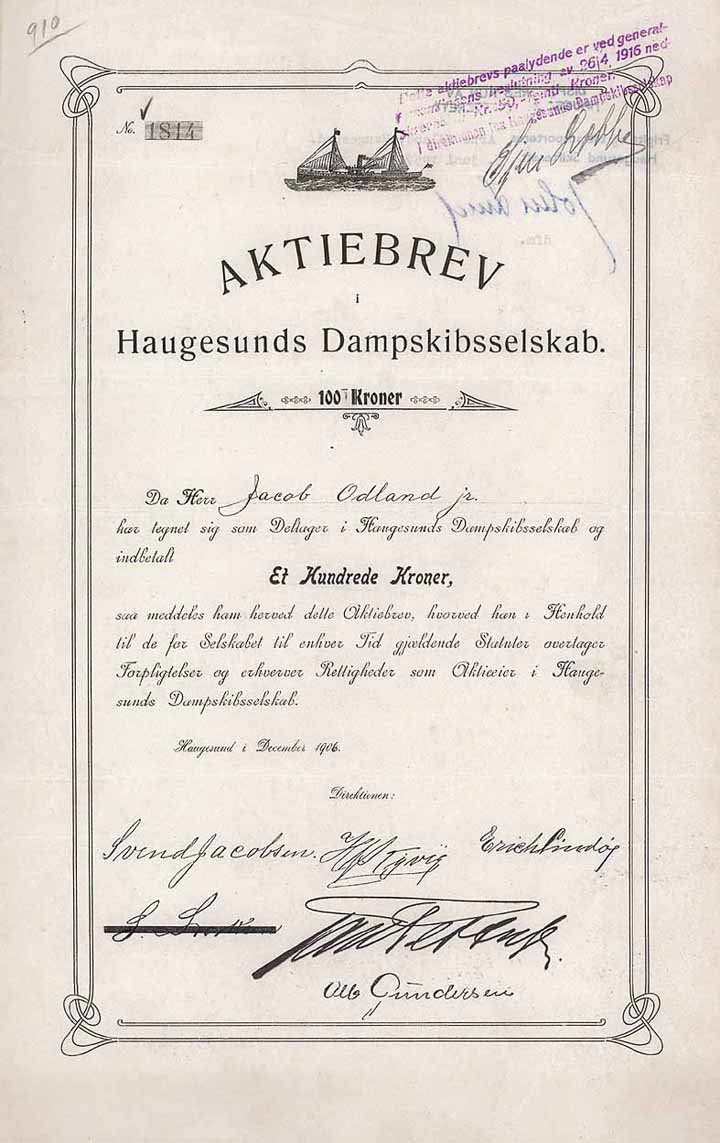 910
Dette aktiebrevs paalydende er ved general-
forsamlingens beslutning av 26/4 1916 ned-
skrevet til Kr. 50,- femti Kroner.
I direktionen for Haugesunds Dampskibsselskap
No. 1814
AKTIEBREV
i
Haugesunds Dampskibsselskab.
100 Kroner
Da Herr Jacob Odland jr.
har tegnet sig som Deltager i Haugesunds Dampskibsselskab og
indbetalt
Et Hundrede Kroner,
saa meddeles ham herved dette Aktiebrev, hvorved han i Henhold
til de for Selskabet til enhver Tid gjældende Statuter overtager
Forpligtelser og erhverver Rettigheder som Aktieeier i Hauge-
sunds Dampskibsselskab.
Haugesund i December 1906.
Direktionen:
Svend Jacobsen. Erich Lindøe
Alb Gundersen